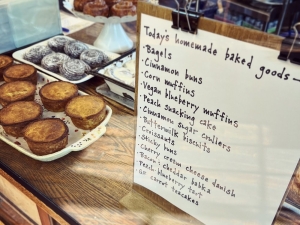 Today's homemade baked goods-
·Bagels
·Cinnamon buns
·Corn muffins
·Vegan blueberry muffins
·Peach snacking cake
·Cinnamon sugar crullers
·Buttermilk biscuits
·Croissants
·Sticky buns
·Cherry cream cheese danish
·Bacon + cheddar babka
·Peach blueberry tart
·GF carrot teacakes